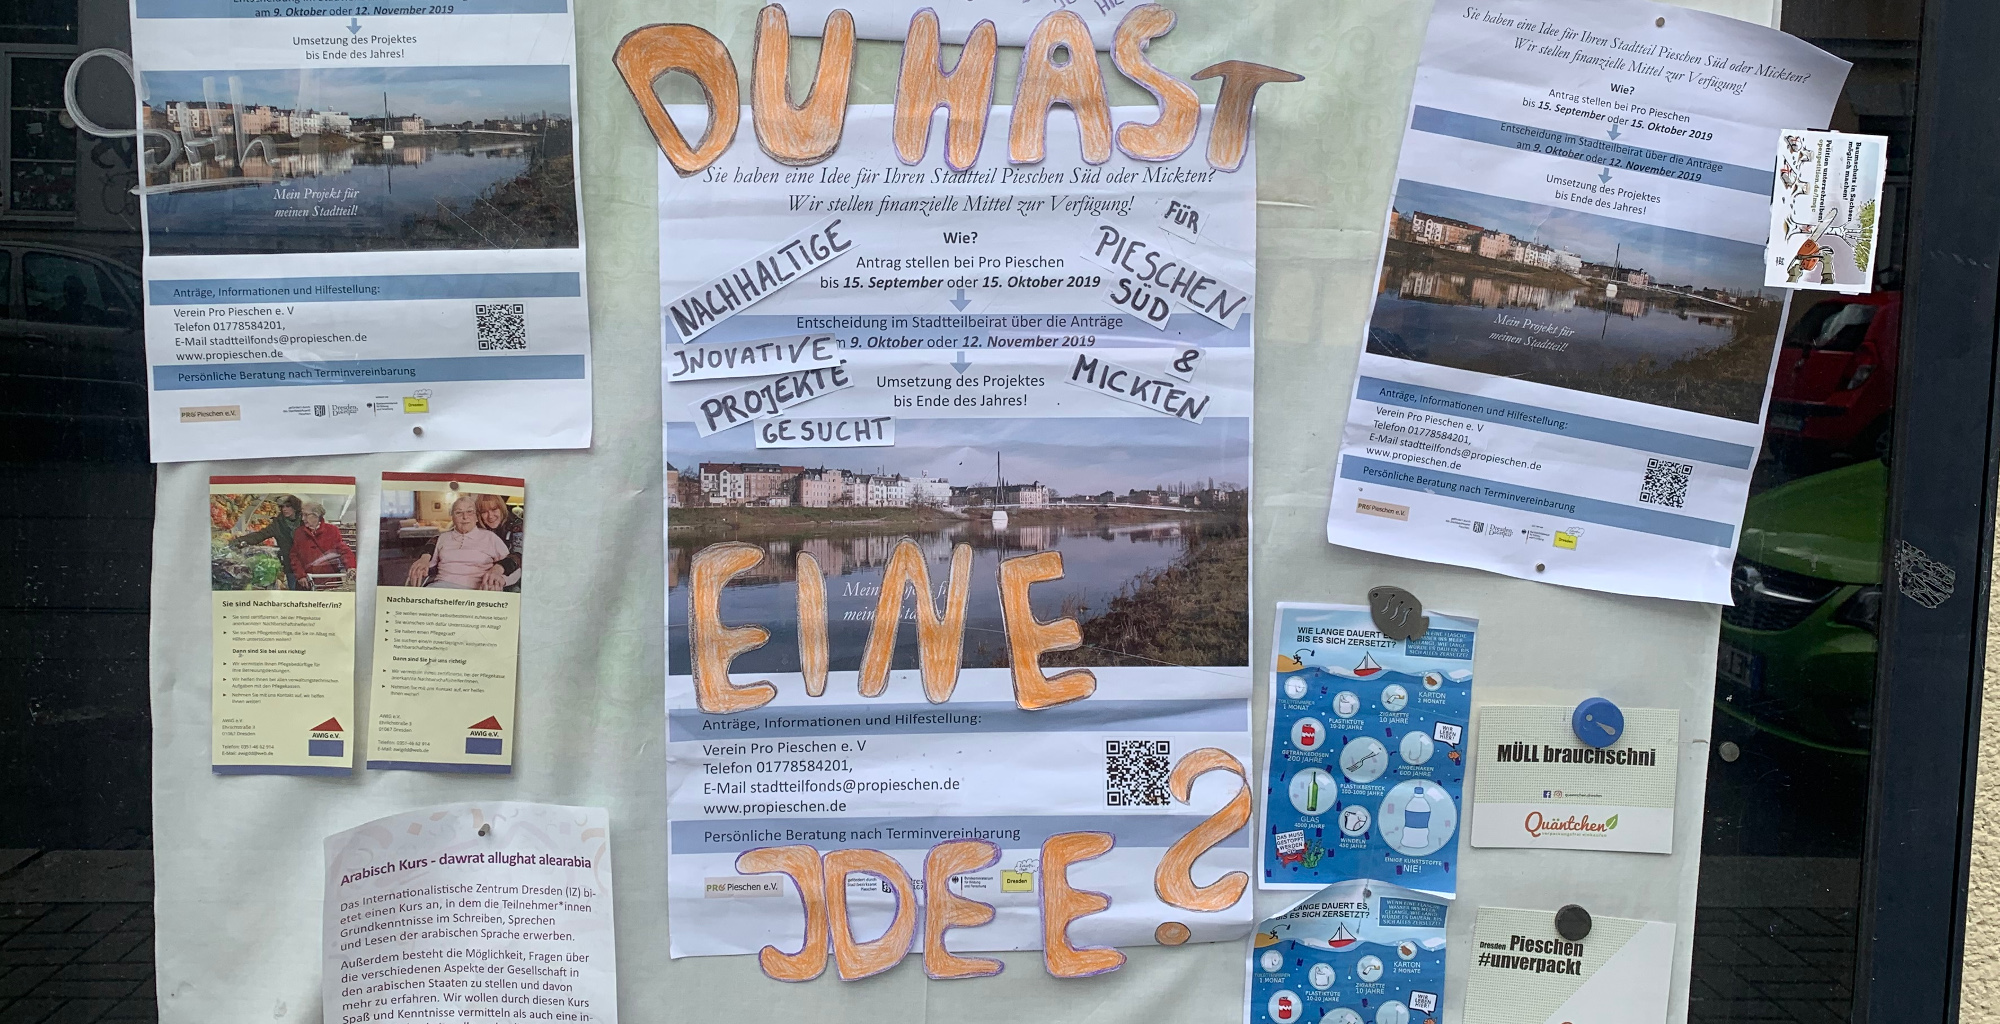 am 9. Oktober oder 12. November 2019
Umsetzung des Projektes
bis Ende des Jahres!
Mein Projekt für
meinen Stadtteil!
Anträge, Informationen und Hilfestellung:
Verein Pro Pieschen e. V
Telefon 01778584201,
E-Mail stadtteilfonds@propieschen.de
www.propieschen.de
Persönliche Beratung nach Terminvereinbarung
PRO Pieschen e.V.
Dresden
Sie sind Nachbarschaftshelfer/in?
Dann sind Sie bei uns richtig!
AWIG e.V.
01067 Dresden
Telefon: 0351-48 62 914
AWIG e.V.
Nachbarschaftshelfer/in gesucht?
Dann sind Sie bei uns richtig!
AWIG e.V.
01067 Dresden
Telefon: 0351-48 62 914
AWIG e.V.
Arabisch Kurs - dawrat allughat alearabia
Das Internationalistische Zentrum Dresden (IZ) bi-
etet einen Kurs an, in dem die Teilnehmer*innen
Grundkenntnisse im Schreiben, Sprechen
und Lesen der arabischen Sprache erwerben.
Außerdem besteht die Möglichkeit, Fragen über
die verschiedenen Aspekte der Gesellschaft in
den arabischen Staaten zu stellen und davon
mehr zu erfahren. Wir wollen durch diesen Kurs
Spaß und Kenntnisse vermitteln als auch eine in-
DU HAST
Sie haben eine Idee für Ihren Stadtteil Pieschen Süd oder Mickten?
Wir stellen finanzielle Mittel zur Verfügung!
Wie?
Antrag stellen bei Pro Pieschen
bis 15. September oder 15. Oktober 2019
Entscheidung im Stadtteilbeirat über die Anträge
9. Oktober oder 12. November 2019
Umsetzung des Projektes
bis Ende des Jahres!
NACHHALTIGE
JNOVATIVE
PROJEKTE
GESUCHT
FÜR
PIESCHEN
SÜD
&
MICKTEN
EINE
Anträge, Informationen und Hilfestellung:
Verein Pro Pieschen e. V
Telefon 01778584201,
E-Mail stadtteilfonds@propieschen.de
www.propieschen.de
Persönliche Beratung nach Terminvereinbarung
PRO Pieschen e.V.
Dresden
JDEE?
Sie haben eine Idee für Ihren Stadtteil Pieschen Süd oder Mickten?
Wir stellen finanzielle Mittel zur Verfügung!
Wie?
Antrag stellen bei Pro Pieschen
bis 15. September oder 15. Oktober 2019
Entscheidung im Stadtteilbeirat über die Anträge
am 9. Oktober oder 12. November 2019
Umsetzung des Projektes
bis Ende des Jahres!
Mein Projekt für
meinen Stadtteil!
Anträge, Informationen und Hilfestellung:
Verein Pro Pieschen e. V
Telefon 01778584201,
E-Mail stadtteilfonds@propieschen.de
www.propieschen.de
Persönliche Beratung nach Terminvereinbarung
PRO Pieschen e.V.
Dresden
Baumschutz in Sachsen
möglich machen!
Petition unterschreiben!
WIE LANGE DAUERT ES,
BIS ES SICH ZERSETZT?
1 MONAT
PLASTIKTÜTE
10-20 JAHRE
ZIGARETTE
10 JAHRE
KARTON
2 MONATE
WIR LEBEN HIER!
GETRÄNKEDOSEN
200 JAHRE
PLASTIKBESTECK
100-1000 JAHRE
ANGELHAKEN
600 JAHRE
GLAS
4000 JAHRE
WINDELN
450 JAHRE
DAS MUSS GESTOPPT WERDEN
EINIGE KUNSTSTOFFE
NIE!
LANGE DAUERT ES,
BIS ES SICH ZERSETZT?
1 MONAT
PLASTIKTÜTE
10-20 JAHRE
ZIGARETTE
10 JAHRE
KARTON
2 MONATE
MÜLL brauchschni
Quäntchen
Dresden Pieschen
#unverpackt